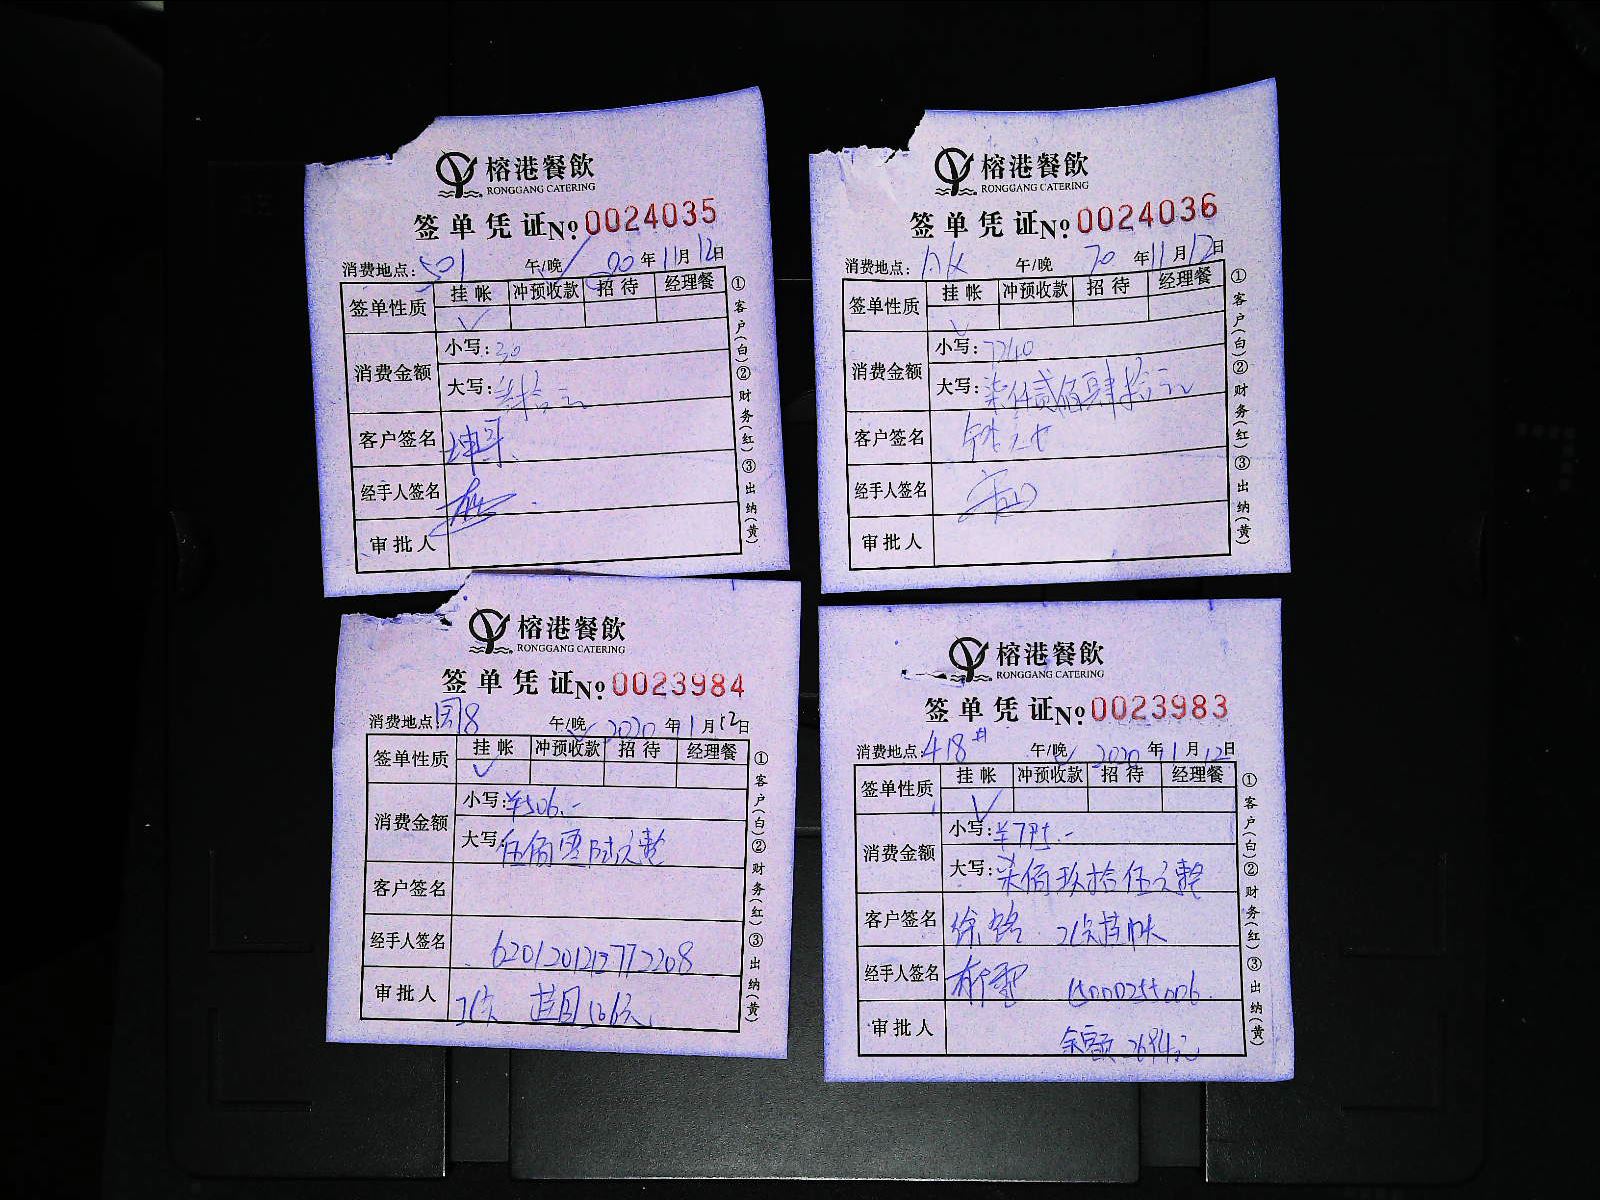 榕港餐飲
RONGGANG CATERING
签单凭证 No 0024035
消费地点: 501 午/晚 20年11月12日
签单性质 挂帐 冲预收款 招待 经理餐
消费金额 小写: 30
大写: 叁拾元
客户签名
经手人签名
审批人
①客户(白)②财务(红)③出纳(黄)
榕港餐飲
RONGGANG CATERING
签单凭证 No 0024036
消费地点: 午/晚 20年11月12日
签单性质 挂帐 冲预收款 招待 经理餐
消费金额 小写: 7240
大写: 柒仟贰佰肆拾元
客户签名
经手人签名
审批人
①客户(白)②财务(红)③出纳(黄)
榕港餐飲
RONGGANG CATERING
签单凭证 No 0023984
消费地点: 周18 午/晚 2020年1月12日
签单性质 挂帐 冲预收款 招待 经理餐
消费金额 小写: ¥506.-
大写: 伍佰零陆元整
客户签名
经手人签名 6201201212772208
审批人
①客户(白)②财务(红)③出纳(黄)
榕港餐飲
RONGGANG CATERING
签单凭证 No 0023983
消费地点: 418# 午/晚 2020年1月12日
签单性质 挂帐 冲预收款 招待 经理餐
消费金额 小写: ¥795.-
大写: 柒佰玖拾伍元整
客户签名 徐 挂帐
经手人签名 15000255006
审批人 余额2694元
①客户(白)②财务(红)③出纳(黄)